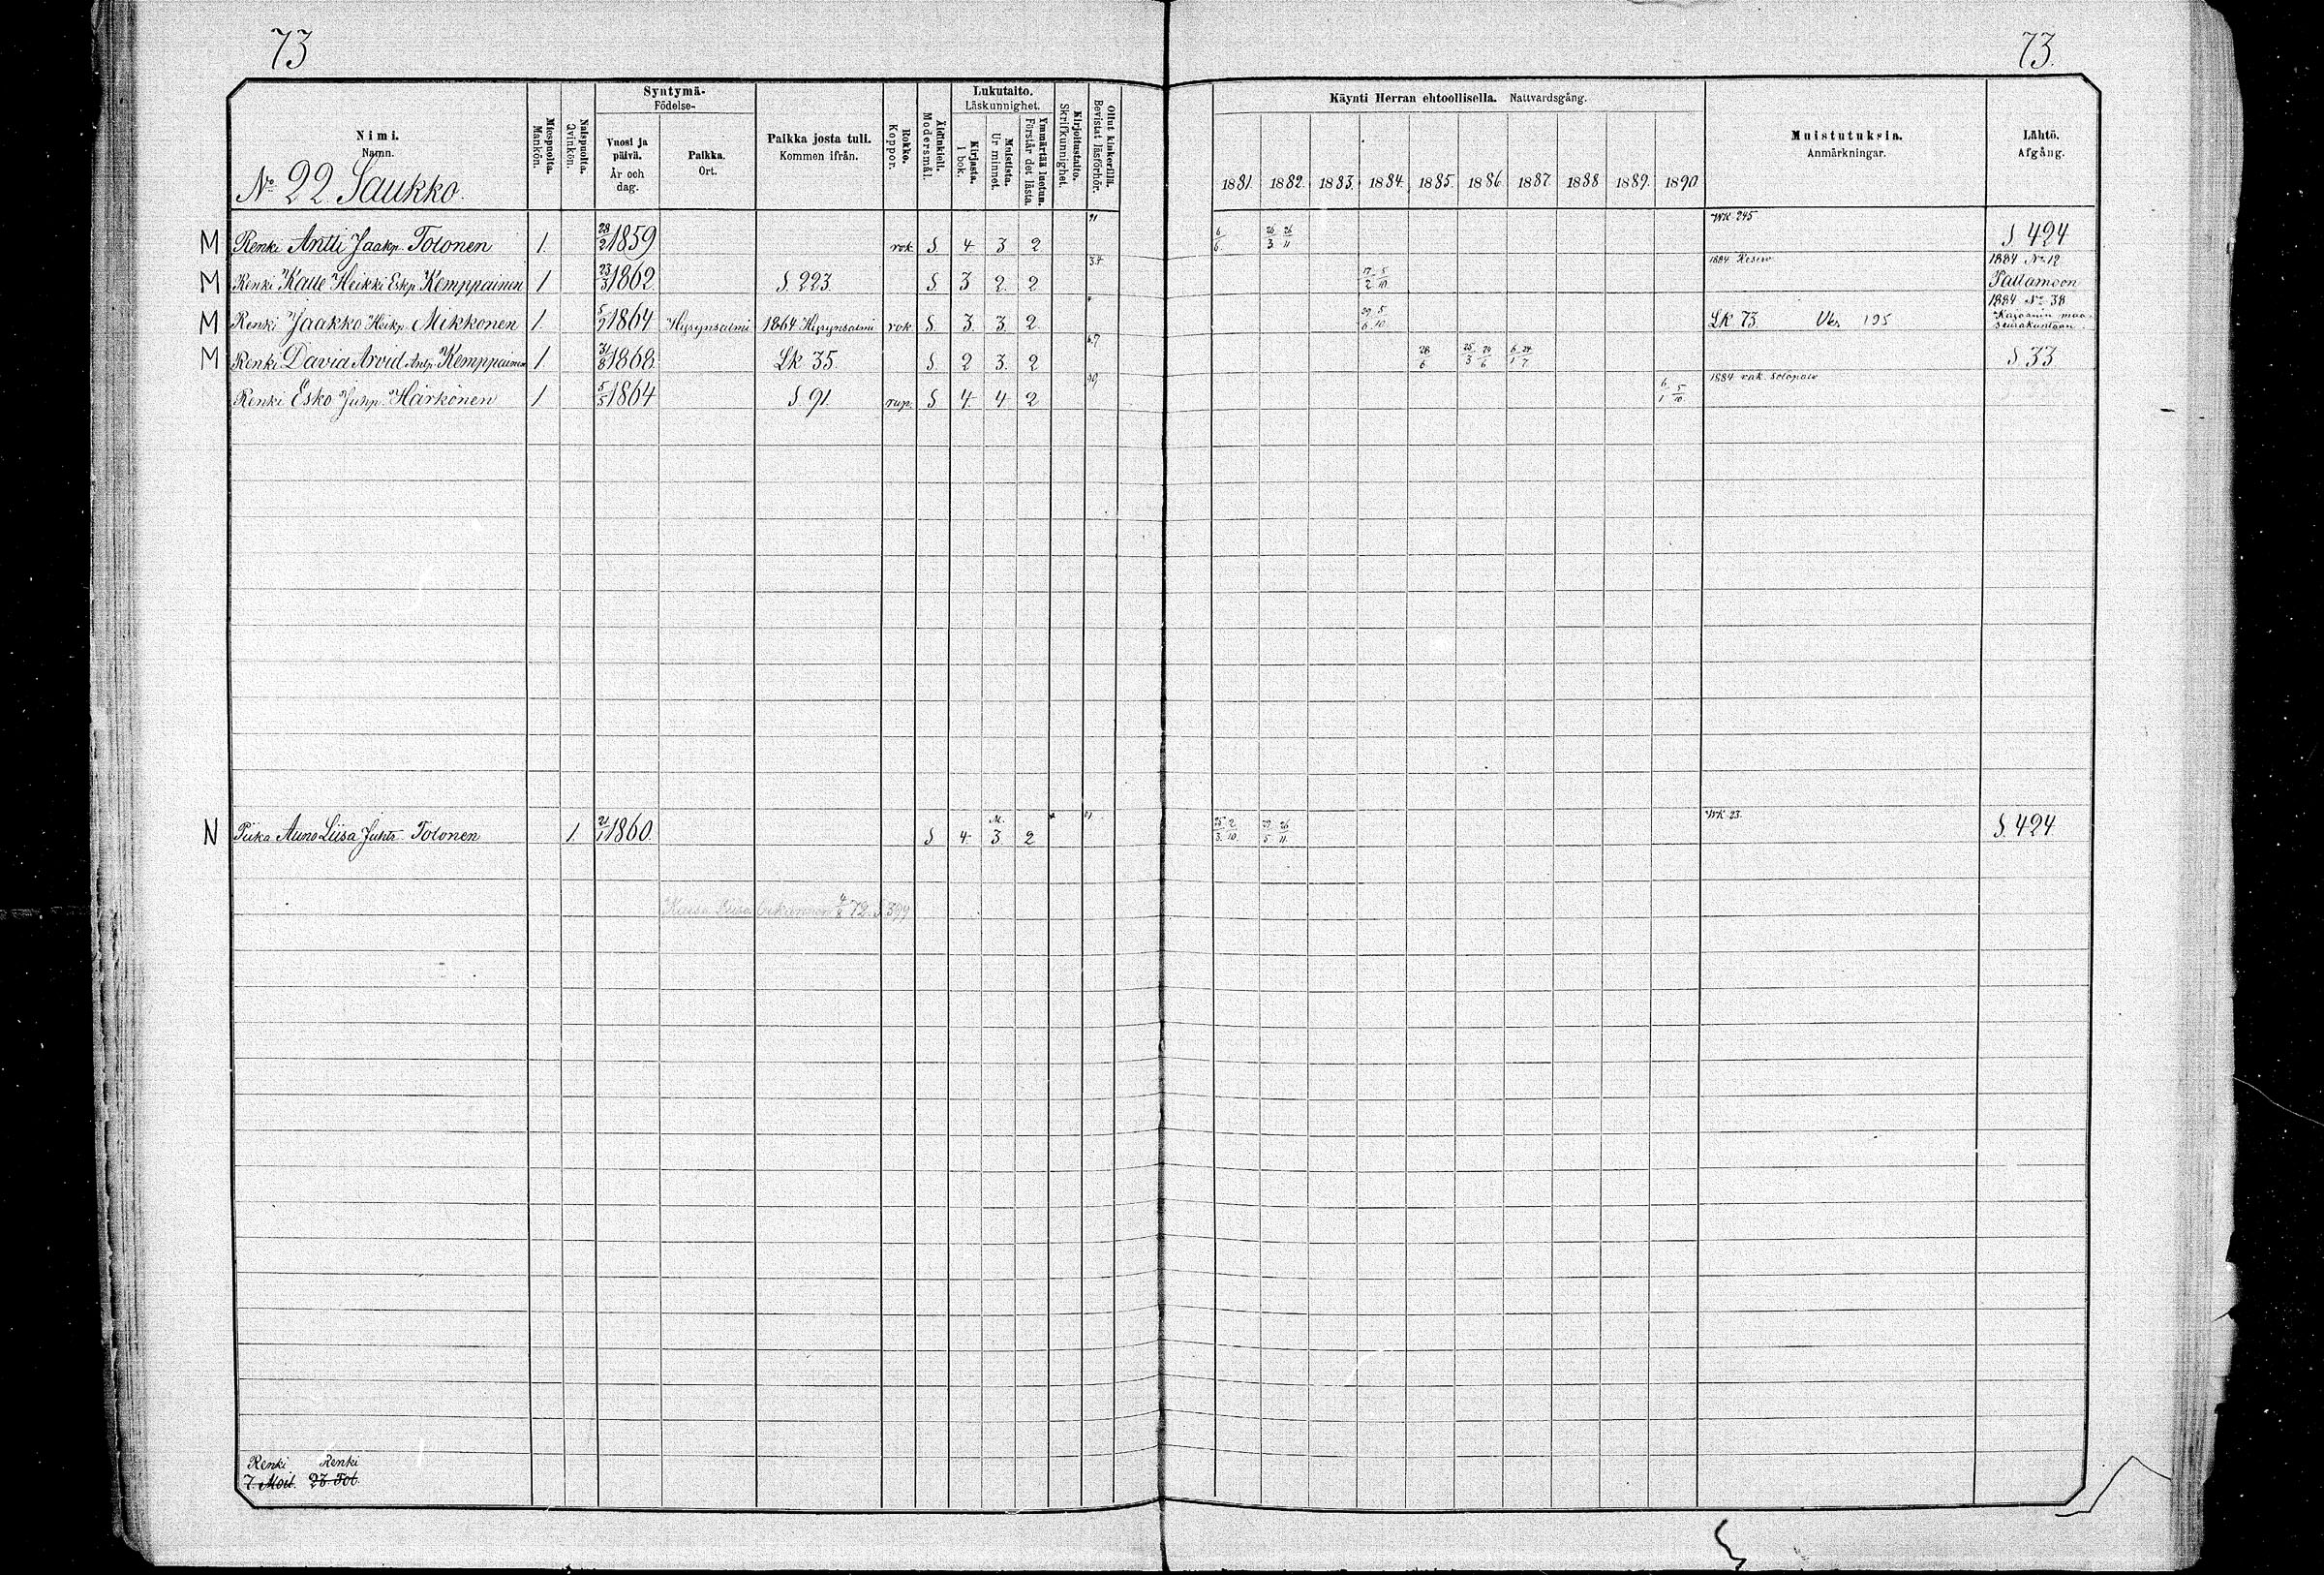 73
73.
Syntymä-
Födelse-
Lukutaito.
Läskunnighet.
Käynti Herran ehtoollisella. Nattvardsgång.
Nimi.
Namn.
Miespuolta.
Mankön.
Naispuolta.
Qvinkön.
Vuosi ja päivä.
År och dag.
Paikka.
Ort.
Paikka josta tuli.
Kommen ifrån.
Rokko.
Koppor.
Äidinkieli.
Modersmål.
Kirjasta.
I bok.
Muistista.
Ur minnet.
Ymmärtää luetun.
Förstår det lästa.
Kirjoitustaito.
Skrifkunnighet.
Ollut kinkerillä.
Bevistat läsförhör.
1881. 1882. 1883. 1884. 1885. 1886. 1887. 1888 1889. 1890
Muistutuksia.
Anmärkningar.
Lähtö.
Afgång.
No 22 Saukko.
M Renki Antti Jaakp. Tolonen 1. 28/2 1859 rok. S. 4. 3. 2. 91 6/6. 26/3 26/11 WK. 245 S. 424
M Renki Kalle Heikki Eskp. Kemppainen 1 23/3 1862. S. 223. S. 3 2. 2 3.4 17/2 5/10 1884 Reserv 1884 No 12 Paltamoon
M Renki Jaakko Heikp. Mikkonen 1. 5/7 1864 Hyrynsalmi 1864 Hyrynsalmi rok. S. 3. 3. 2 29/6 5/10 Lk 73. Uks 195 1884 No 38 Kajaanin maaseurakuntaan.
M Renki David Arvid Antp. Kemppainen 1 31/8 1868. Lk 35. S. 2 3. 2 6.7 28/6 25/3 24/6 6/1 24/7 S. 33
Renki Esko Juhp. Härkönen 1 5/5 1864 S. 91. rup. S. 4. 4. 2 90, 6/1 5/10. 1884 vak. sotapalv
N Piika Anna Liisa Juhtr. Tolonen 1. 21/1 1860. S 4. M. 3. 2 25/3 2/10. 29/5 26/11. WK. 23. S. 424
Liisa 4/8 72. S 399
Renki Renki
7. Moil. 23 Tol.